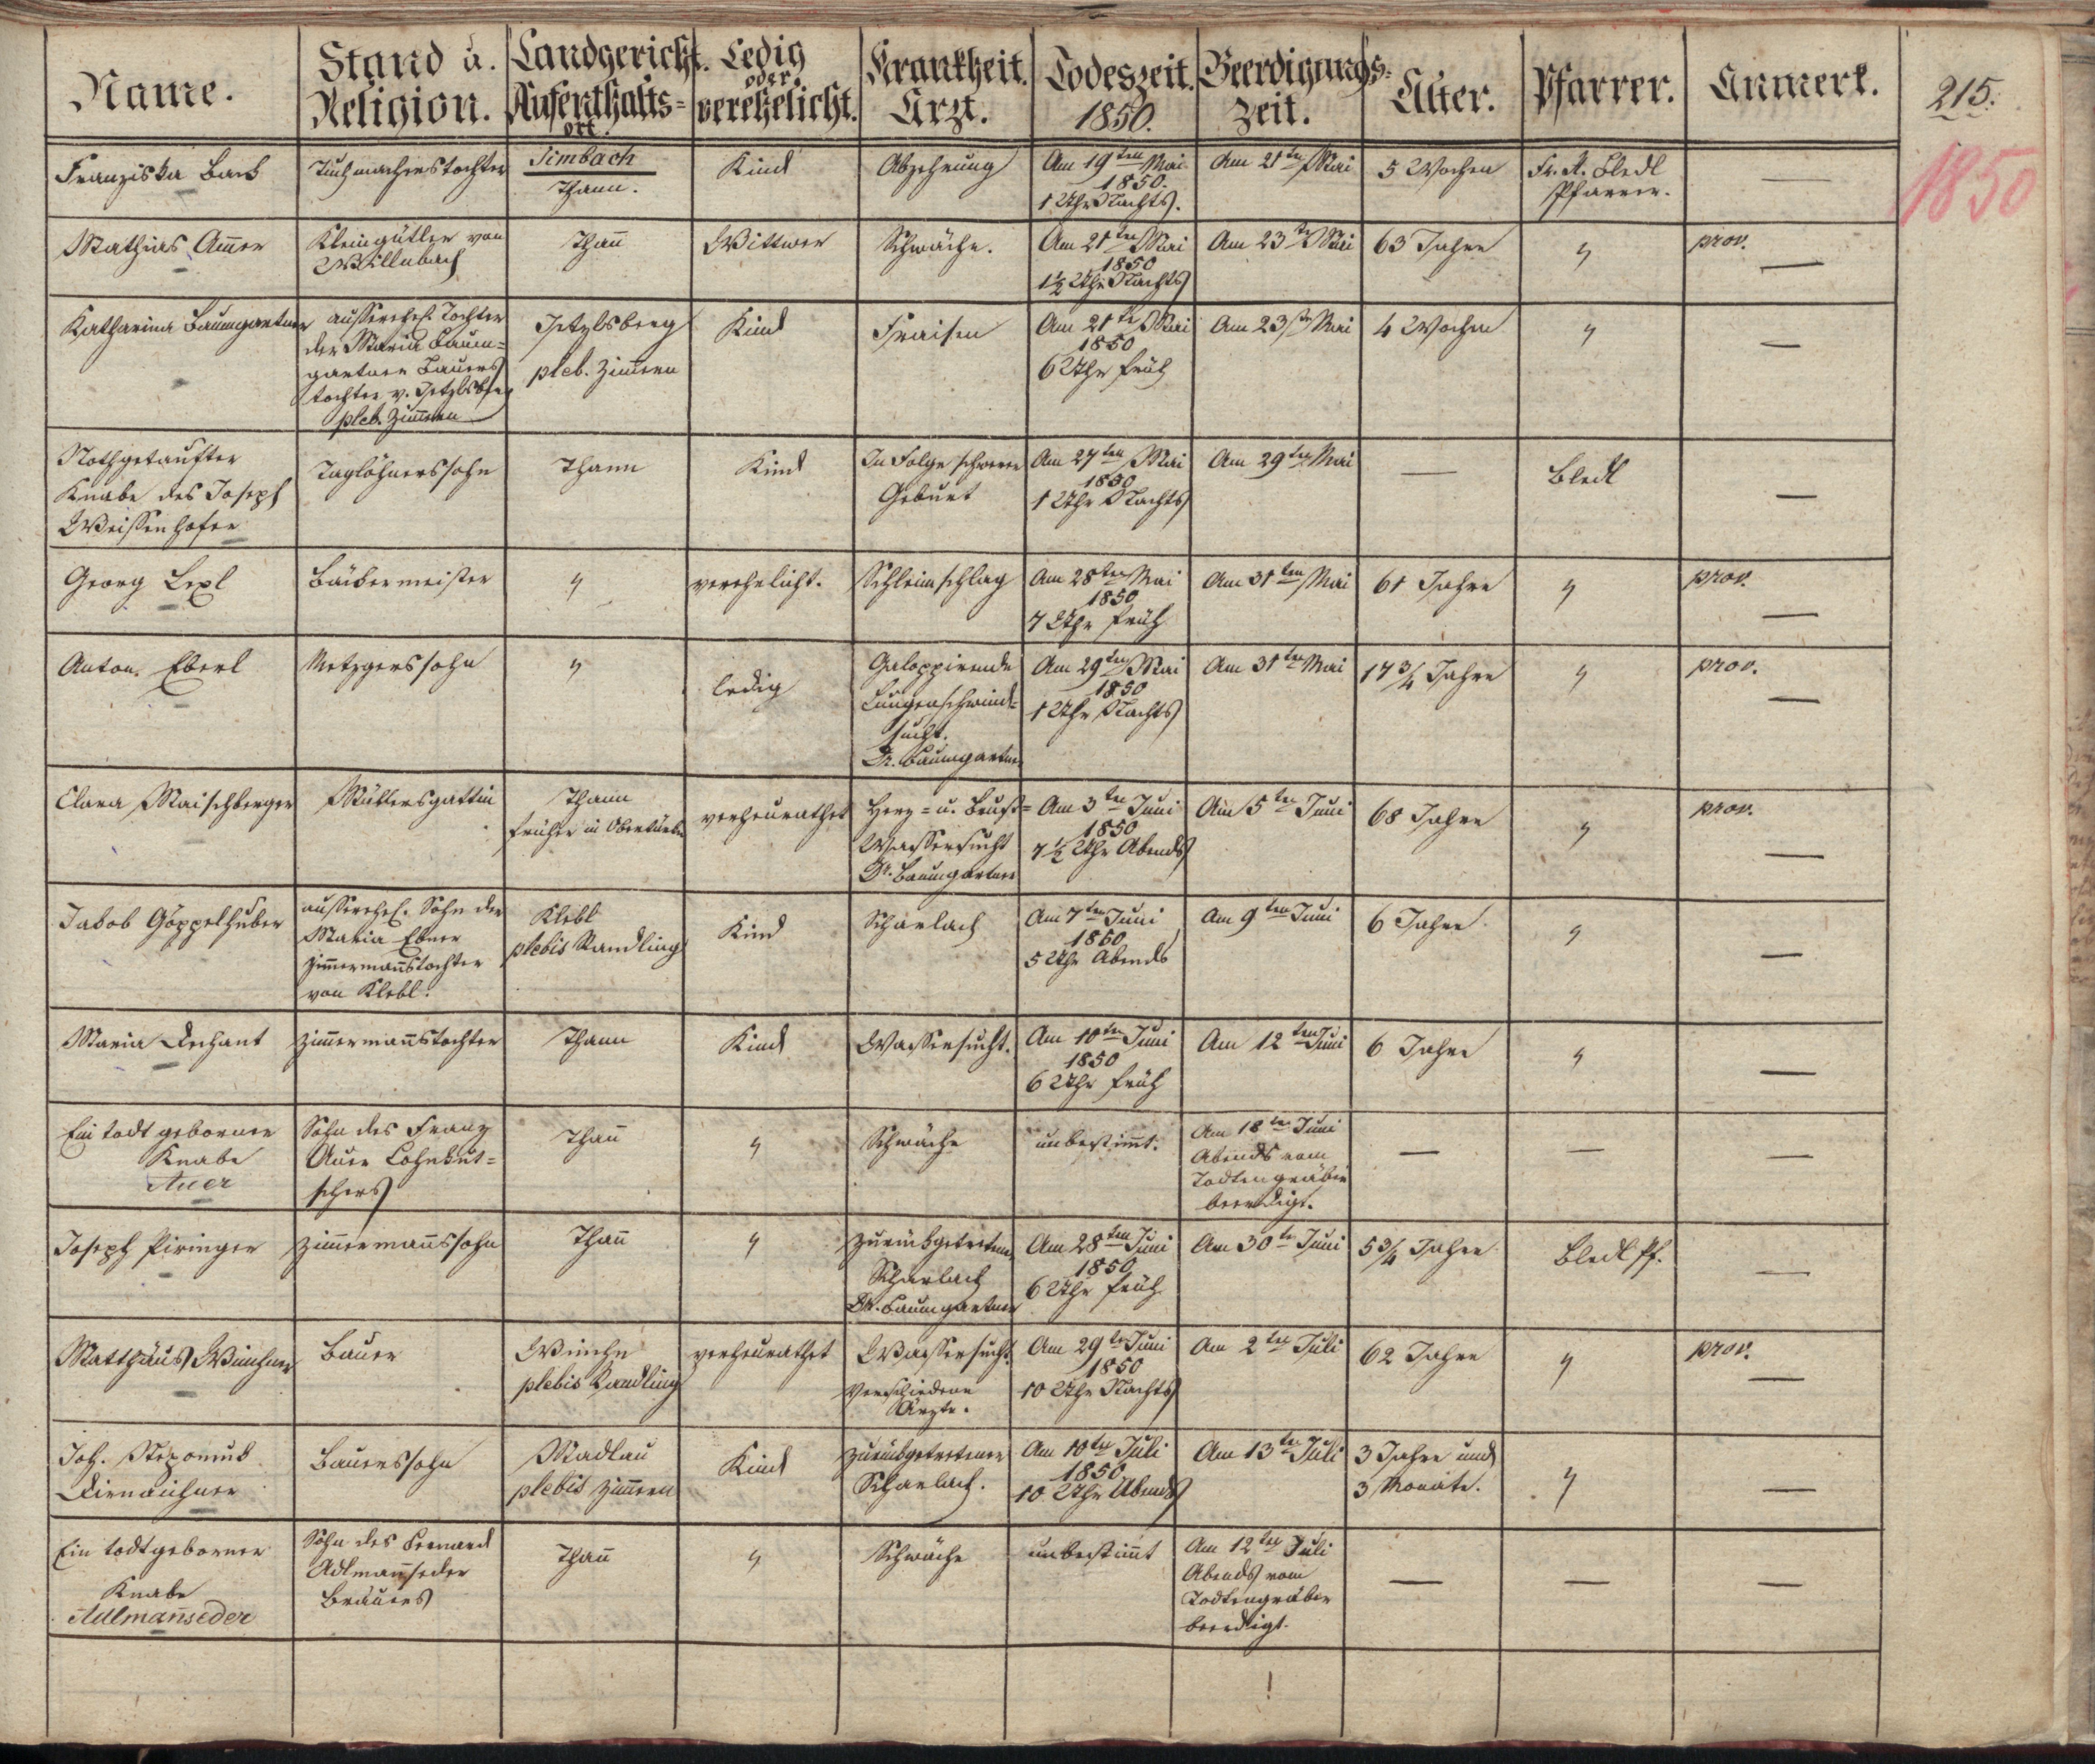 Name.
Stand u.
Religion.
Landgericht.
Aufenthalts=
ort.
Ledig
oder
verehelicht.
Krankheit.
Arzt.
Todeszeit.
1850.
Beerdigungs=
zeit.
Alter.
Pfarrer.
Anmerk.
215.
1850
Franziska Back
Tuchmacherstochter
Simbach
Thann.
Kind
Abzehrung
Am 19ten Mai
1850.
1 Uhr Nachts.
Am 21ten Mai
5 Wochen
Fr. A. Bledl
Pfarrer.
—
Mathias Am̄er
Kleingütler von
Willnbach
Than̄
Wittwer
Schwäche.
Am 21ten Mai
1850
1½ Uhr Nachts
Am 23ten Mai
63 Jahre
"
prov.
—
Katharina Baumgartner
ausserehel. Tochter
der Maria Baum=
gartner Bauers
tochter v.
pleb. Zim̄ern
Jetzlsberg
pleb. Zim̄ern
Kind
Fraisen
Am 21ten Mai
1850
6 Uhr früh
Am 23ten Mai
4 Wochen
"
—
Nothgetaufter
Knabe des Joseph
Weissenhofer
Taglöhnerssohn
Thann
Kind
In Folge schwerer
Geburt
Am 27ten Mai
1850
1 Uhr Nachts
Am 29ten Mai
—
Bledl
—
Georg Lexl
meister
"
verehelicht.
Schleimschlag
Am 28ten Mai
1850
7 Uhr früh
Am 31ten Mai
61 Jahre
"
prov.
—
Anton Eberl
Metzgerssohn
"
ledig
Galoppirende
Lungenschwind=
sucht.
Dr. Baumgartner
Am 29ten Mai
1850
1 Uhr Nachts
Am 31ten Mai
17¾ Jahre
"
prov.
—
Clara Maischberger
Müllersgattin
Thann
früher in
verheurathet
Herz= u. Brust=
Wassersucht
Dr. Baumgartner
Am 3ten Juni
1850
7½ Uhr Abends
Am 5ten Juni
68 Jahre
"
prov.
—
Jakob Göppelhuber
ausserehel. Sohn der
Maria Ebner
Zim̄erman̄stochter
von Klebl.
Klebl
plebis Randling
Kind
Scharlach
Am 7ten Juni
1850
5 Uhr Abends
Am 9ten Juni
6 Jahre
"
—
Maria Dechant
Zim̄erman̄stochter
Thann
Kind
Wassersucht.
Am 10ten Juni
1850
6 Uhr früh
Am 12ten Juni
6 Jahre
"
—
Ein todt geborner
Knabe
Auer
Sohn des Franz
Auer Lohnkut=
schers
Than̄
"
Schwäche
unbestim̄t.
Am 18ten Juni
Abends vom
Todtengräber
beerdigt.
—
—
—
Joseph Piringer
Zim̄erman̄ssohn
Than̄
"
zurückgetretener
Scharlach
Dr. Baumgartner
Am 28ten Juni
1850
6 Uhr früh
Am 30te Juni
5¾ Jahre
Bledl Pf.
—
Matthäus Wimhner
Bauer
Wimhn
plebis Randling
verheurathet
Wassersucht.
Verschiedene
Ärzte.
Am 29ten Juni
1850
10 Uhr Nachts
Am 2ten Juli
62 Jahre
"
prov.
—
Joh. Nepomuk
Dirnaichner
Bauerssohn
Madlau
plebis Zim̄ern
Kind
zurückgetretener
Scharlach.
Am 10ten Juli
1850
10 Uhr Abends
Am 13ten Juli
3 Jahre und
3 Monate.
"
—
Ein todtgeborner
Knabe
Adlman̄seder
Sohn des Leonard
Adlman̄seder
Bräuers
Than̄
"
Schwäche
unbestim̄t
Am 12ten Juli
Abends vom
Todtengräber
beerdigt.
—
—
—